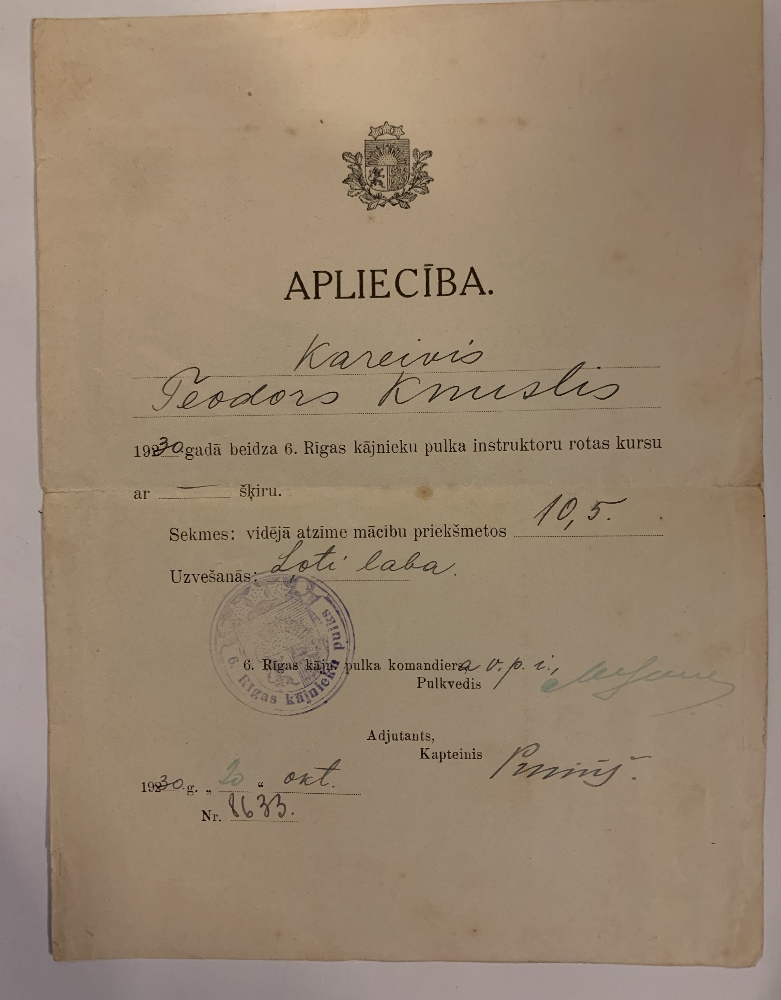 APLIECĪBA.
Kareivis
Teodors Kmuslis
1930 gadā beidza 6. Rīgas kājnieku pulka instruktoru rotas kursu
ar — šķiru.
Sekmes: vidējā atzīme mācību priekšmetos 10,5.
Uzvešanās: Ļoti laba.
6. Rīgas kājnieku pulks
6. Rīgas kājn. pulka komandiera v. p. i.,
Pulkvedis
Adjutants,
Kapteinis
1930. g. „ 20 “ okt.
Nr. 8633.